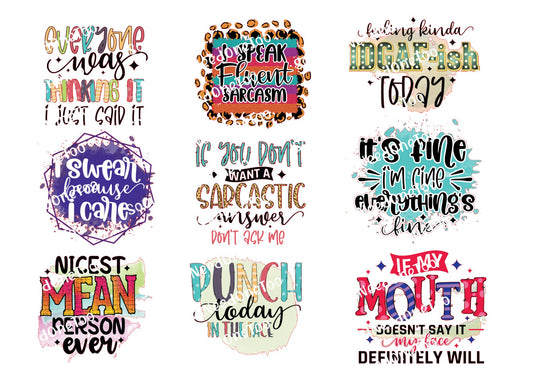 everyone
was
THINKING IT
I JUST SAID IT
I SPEAK
Fluent
SARCASM
feeling kinda
IDGAF-ish
TODAY
I swear
because
I care
IF YOU DON'T
WANT A
SARCASTIC
answer
DON'T ASK ME
it's fine
i'm fine
everything's
fine
NICEST
MEAN
PERSON
ever
PUNCH
today
IN THE FACE
IF MY
MOUTH
DOESN'T SAY IT
my face
DEFINITELY WILL